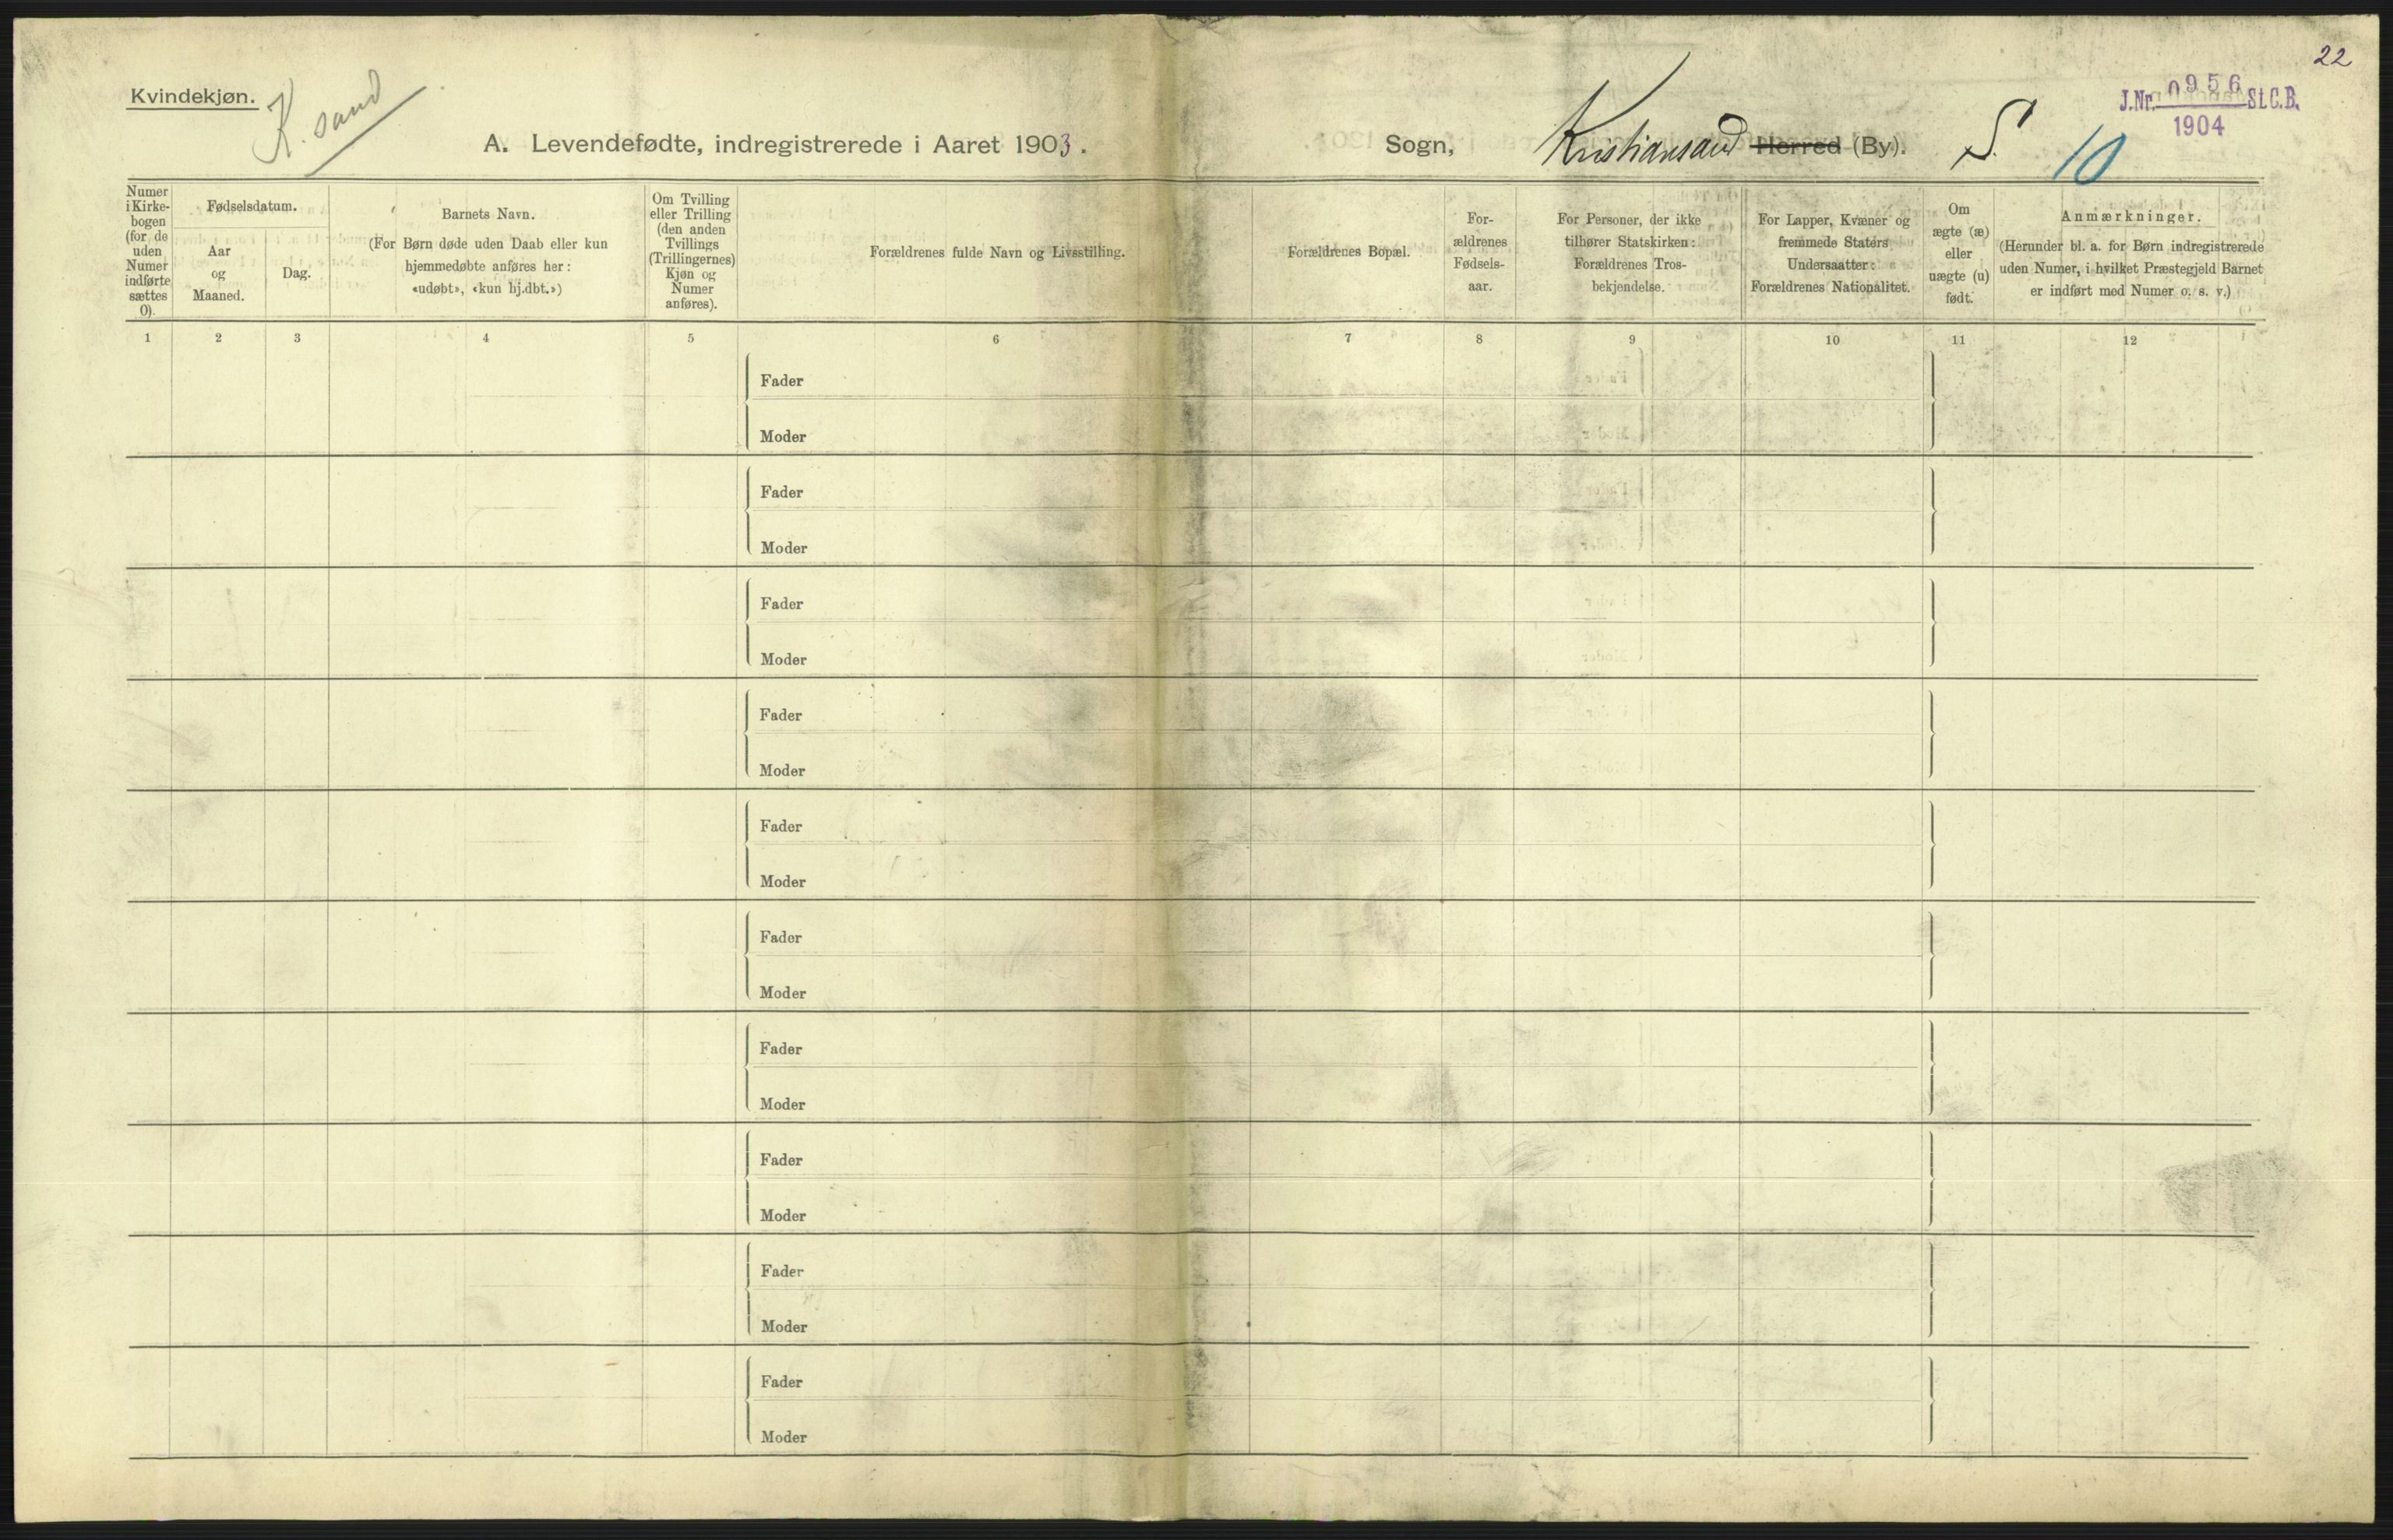 22
Kvindekjøn.
K. sand
J.Nr. 0956 St.C.B.
1904
A. Levendefødte, indregistrerede i Aaret 1903.
Sogn, Kristiansand Herred (By). S. 10
Numer
i Kirke-
bogen
(for de
uden
Numer
indførte
sættes
0).
Fødselsdatum.
Aar
og
Maaned.
Dag.
Barnets Navn.
(For Børn døde uden Daab eller kun
hjemmedøbte anføres her:
«udøbt», «kun hj.dbt.»)
Om Tvilling
eller Trilling
(den anden
Tvillings
(Trillingernes)
Kjøn og
Numer
anføres).
Forældrenes fulde Navn og Livsstilling.
Forældrenes Bopæl.
For-
ældrenes
Fødsels-
aar.
For Personer, der ikke
tilhører Statskirken:
Forældrenes Tros-
bekjendelse.
For Lapper, Kvæner og
fremmede Staters
Undersaatter:
Forældrenes Nationalitet.
Om
ægte (æ)
eller
uægte (u)
født.
Anmærkninger.
(Herunder bl. a. for Børn indregistrerede
uden Numer, i hvilket Præstegjeld Barnet
er indført med Numer o. s. v.)
1 2 3 4 5 6 7 8 9 10 11 12
Fader
Moder
Fader
Moder
Fader
Moder
Fader
Moder
Fader
Moder
Fader
Moder
Fader
Moder
Fader
Moder
Fader
Moder
Fader
Moder